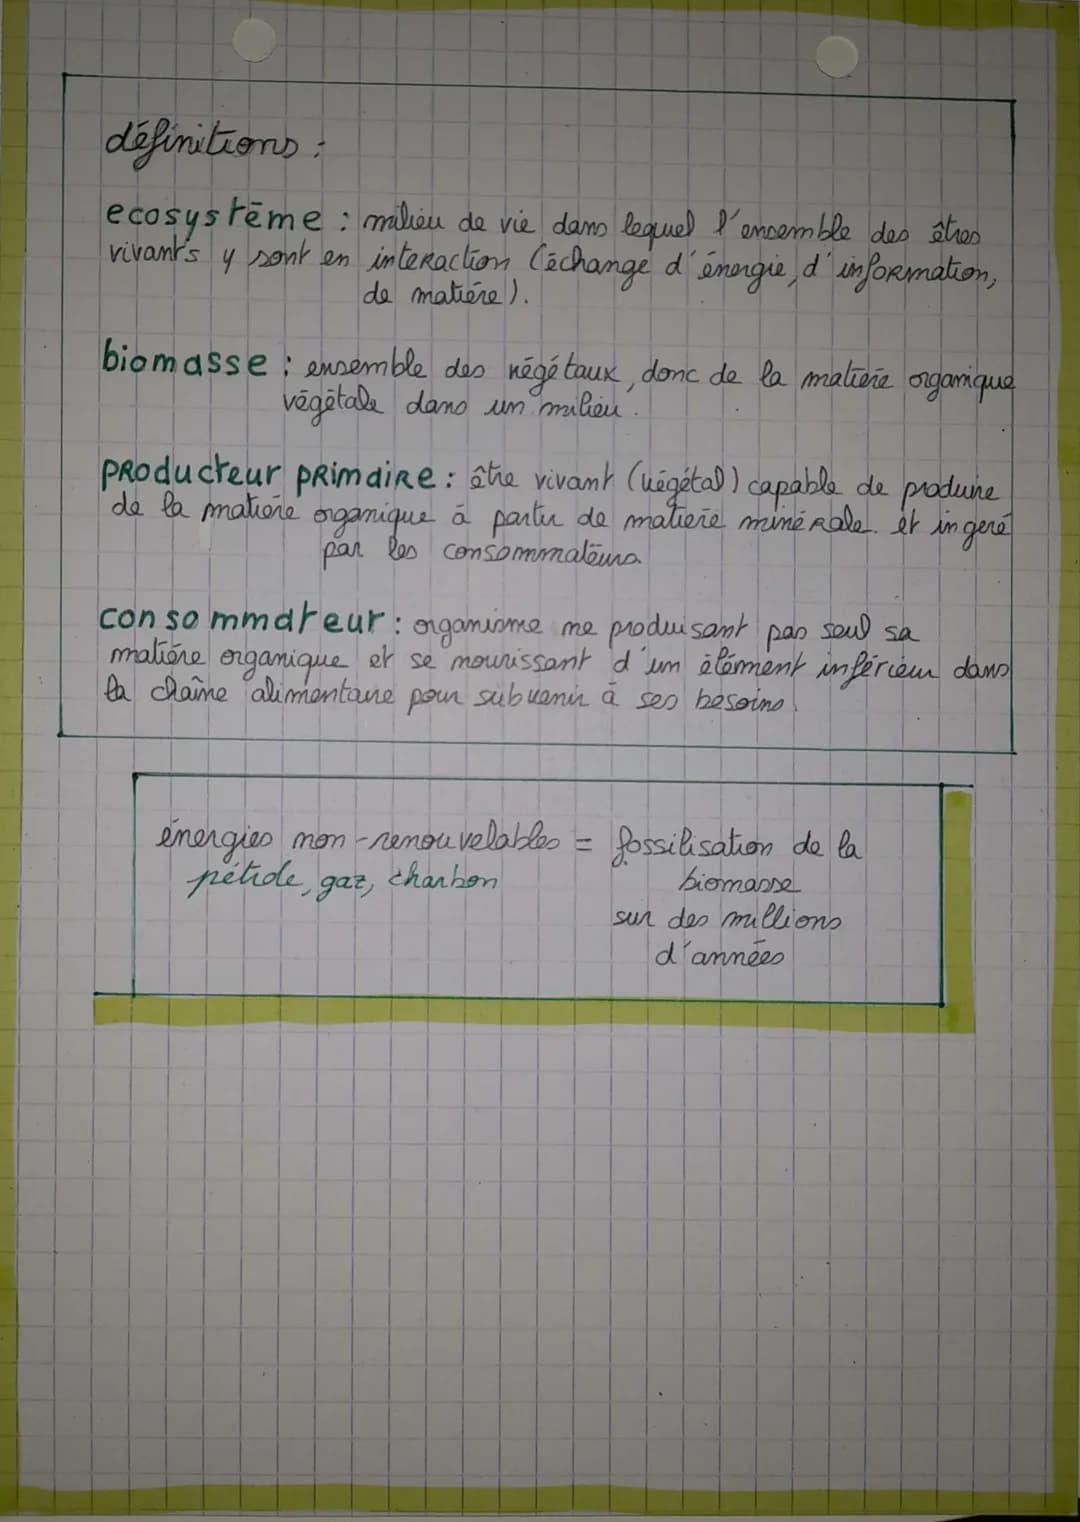 définitions :
ecosystème : milieu de vie dans lequel l'ensemble des êtres
vivants y sont en interaction (échange d'énergie, d'information,
de matière).
biomasse : ensemble des végétaux, donc de la matière organique
végétale dans un milieu.
producteur primaire : être vivant (végétal) capable de produire
de la matière organique à partir de matière minérale. et ingeré
par les consommateurs.
consommateur : organisme ne produisant pas seul sa
matière organique et se nourissant d'un élément inférieur dans
la chaîne alimentaire pour subvenir à ses besoins.
énergies non-renouvelables = fossilisation de la
pétrole, gaz, charbon biomasse
sur des millions
d'années